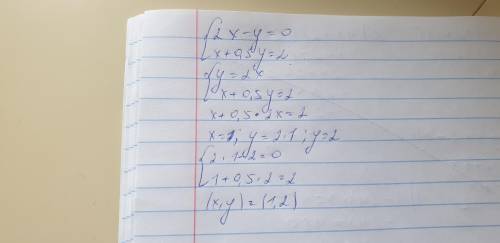 {2x-y=0
x+0,5y=2
{y=2x
x+0,5y=2
x+0,5·2x=2
x=1; y=2·1; y=2
{2·1-2=0
1+0,5·2=2
(x,y)=(1,2)